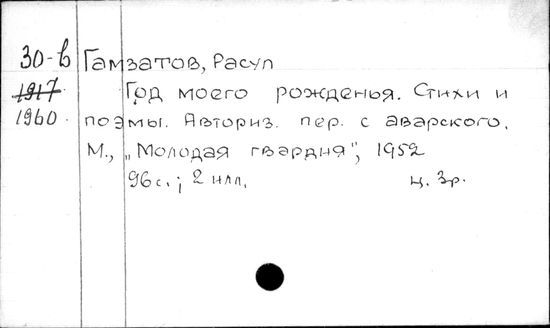 30-в Гамзатов, Расул
1917 Год моего рожденья. Стихи и
1960. поэмы. Авториз. пер. с аварского.
М., „Молодая гвардия", 1952
96с.; 2 илл. ц. 3р.